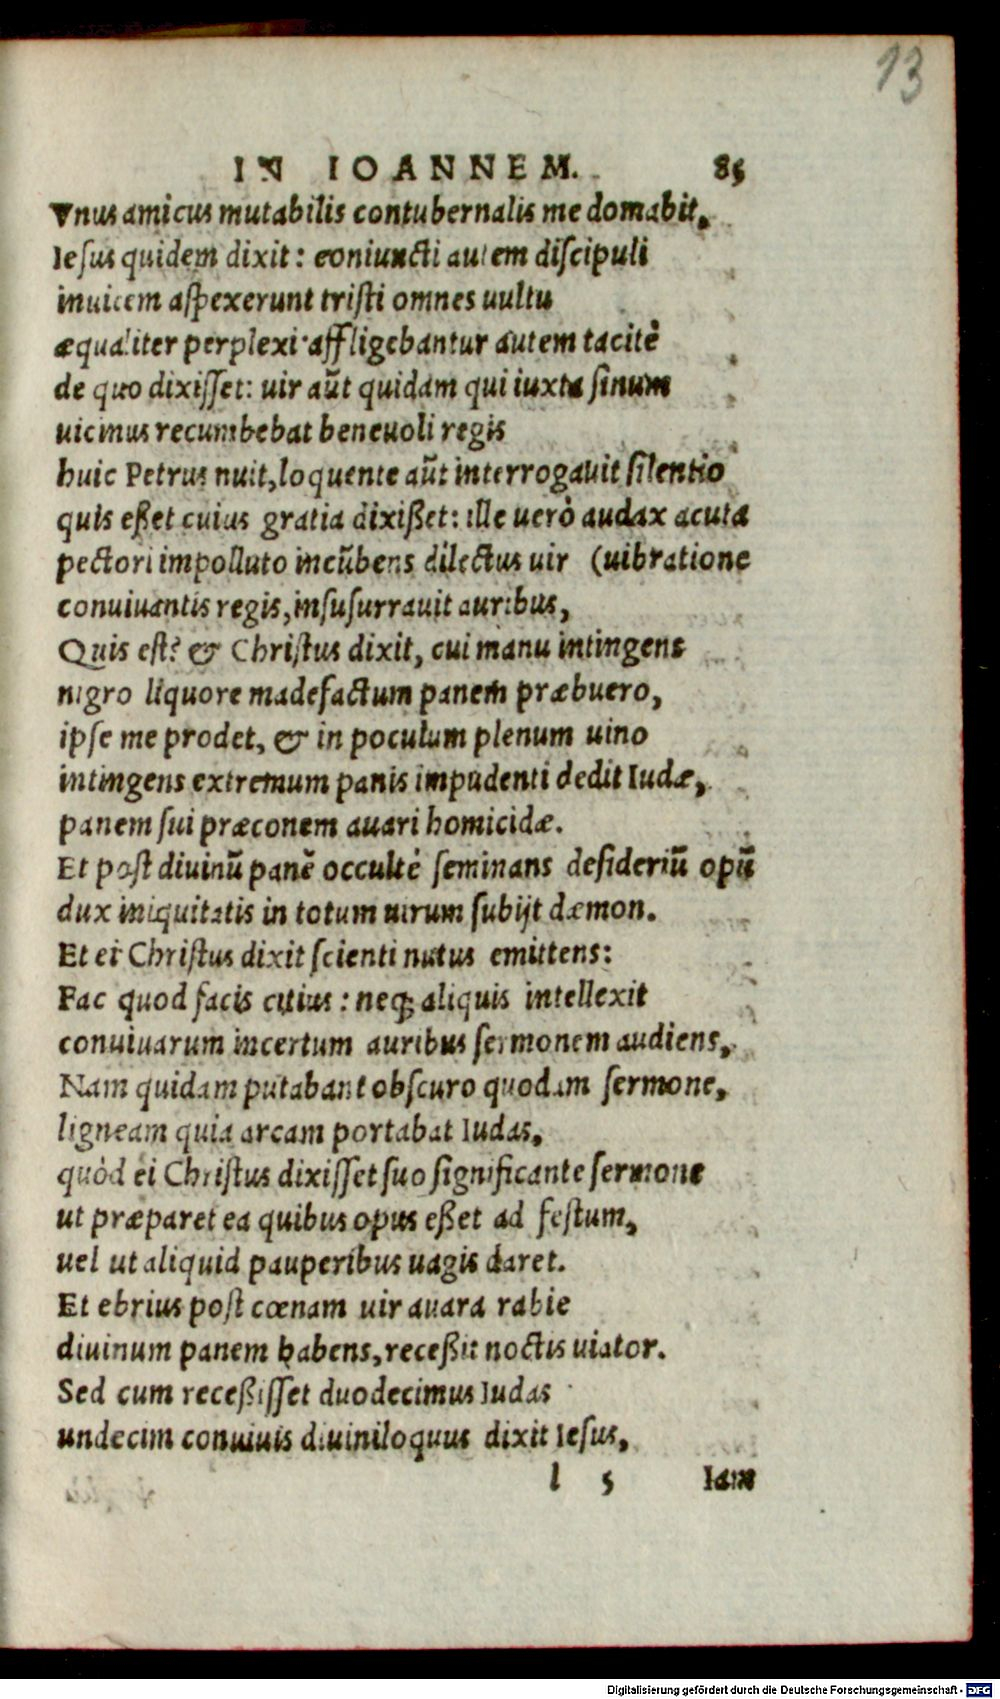 13
IN IOANNEM. 85
Vnus amicus mutabilis contubernalis me domabit,
Iesus quidem dixit: coniuncti autem discipuli
inuicem aspexerunt tristi omnes uultu
æqualiter perplexi affligebantur autem tacitè
de quo dixisset: uir aũt quidam qui iuxta sinum
uicinus recumbebat beneuoli regis
huic Petrus nuit, loquente aũt interrogauit silentio
quis eßet cuius gratia dixißet: ille uerò audax acuta
pectori impolluto incũbens dilectus uir (uibratione
conuiuantis regis, insusurrauit auribus,
Quis est? & Christus dixit, cui manu intingens
nigro liquore madefactum panem præbuero,
ipse me prodet, & in poculum plenum uino
intingens extremum panis impudenti dedit Iudæ,
panem sui præconem auari homicidæ.
Et post diuinũ panẽ occultè seminans desideriũ opũ
dux iniquitatis in totum uirum subijt dæmon.
Et ei Christus dixit scienti nutus emittens:
Fac quod facis citius: neq; aliquis intellexit
conuiuarum incertum auribus sermonem audiens,
Nam quidam putabant obscuro quodam sermone,
ligneam quia arcam portabat Iudas,
quòd ei Christus dixisset suo significante sermone
ut præparet ea quibus opus eßet ad festum,
uel ut aliquid pauperibus uagis daret.
Et ebrius post cœnam uir auara rabie
diuinum panem habens, receßit noctis uiator.
Sed cum receßisset duodecimus Iudas
undecim conuiuis diuiniloquus dixit Iesus,
l 5 Iam
Digitalisierung gefördert durch die Deutsche Forschungsgemeinschaft - DFG